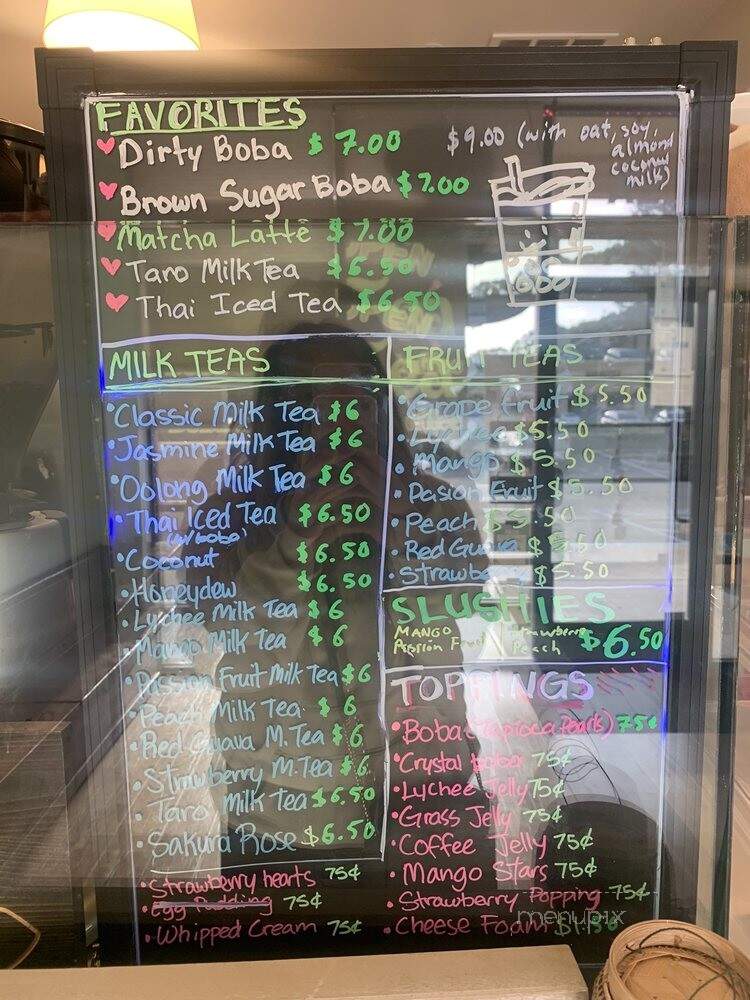 FAVORITES
Dirty Boba $7.00
$9.00 (with oat, soy, almond coconut milk)
Brown Sugar Boba $7.00
Matcha Latte $7.00
Taro Milk Tea $6.50
Thai Iced Tea $6.50
MILK TEAS
•Classic Milk Tea $6
•Jasmine Milk Tea $6
•Oolong Milk Tea $6
•Thai Iced Tea $6.50
(w/boba)
•Coconut $6.50
•Honeydew $6.50
•Lychee Milk Tea $6
•Mango Milk Tea $6
•Passion Fruit Milk Tea $6
•Peach Milk Tea $6
•Red Guava M.Tea $6
•Strawberry M.Tea $6
•Taro Milk Tea $6.50
•Sakura Rose $6.50
•Strawberry hearts 75¢
•Egg Pudding 75¢
•Whipped Cream 75¢
FRUIT TEAS
•Grape fruit $5.50
•Lychee $5.50
•Mango $5.50
•Pasion Fruit $5.50
•Peach $5.50
•Red Guava $5.50
•Strawberry $5.50
SLUSHIES
MANGO Strawberry
Passion Fruit Peach $6.50
TOPPINGS
•Boba (Tapioca Pearls) 75¢
•Crystal boba 75¢
•Lychee Jelly 75¢
•Grass Jelly 75¢
•Coffee Jelly 75¢
•Mango Stars 75¢
•Strawberry Popping 75¢
•Cheese Foam $1.50
menupix